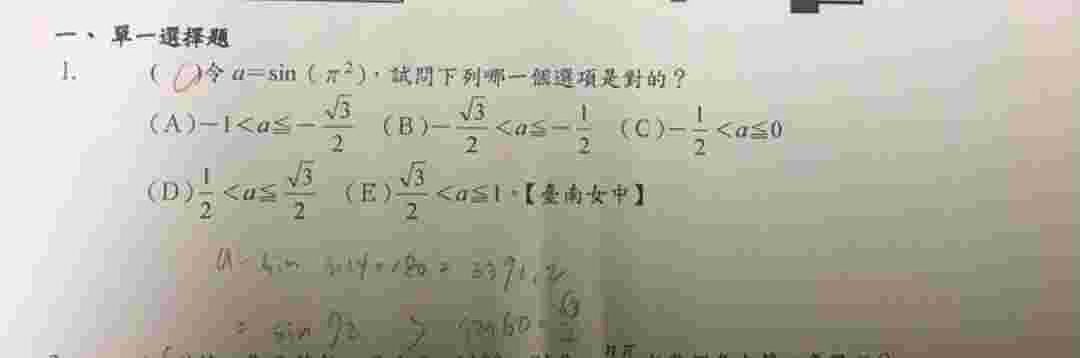 一、單一選擇題
1. ( )令 a=sin ( π²)，試問下列哪一個選項是對的？
(A)-1<a≦-√3/2 (B)-√3/2<a≦-1/2 (C)-1/2<a≦0
(D)1/2<a≦√3/2 (E)√3/2<a≦1。【臺南女中】
= sin 92 > sin 60 = √3/2